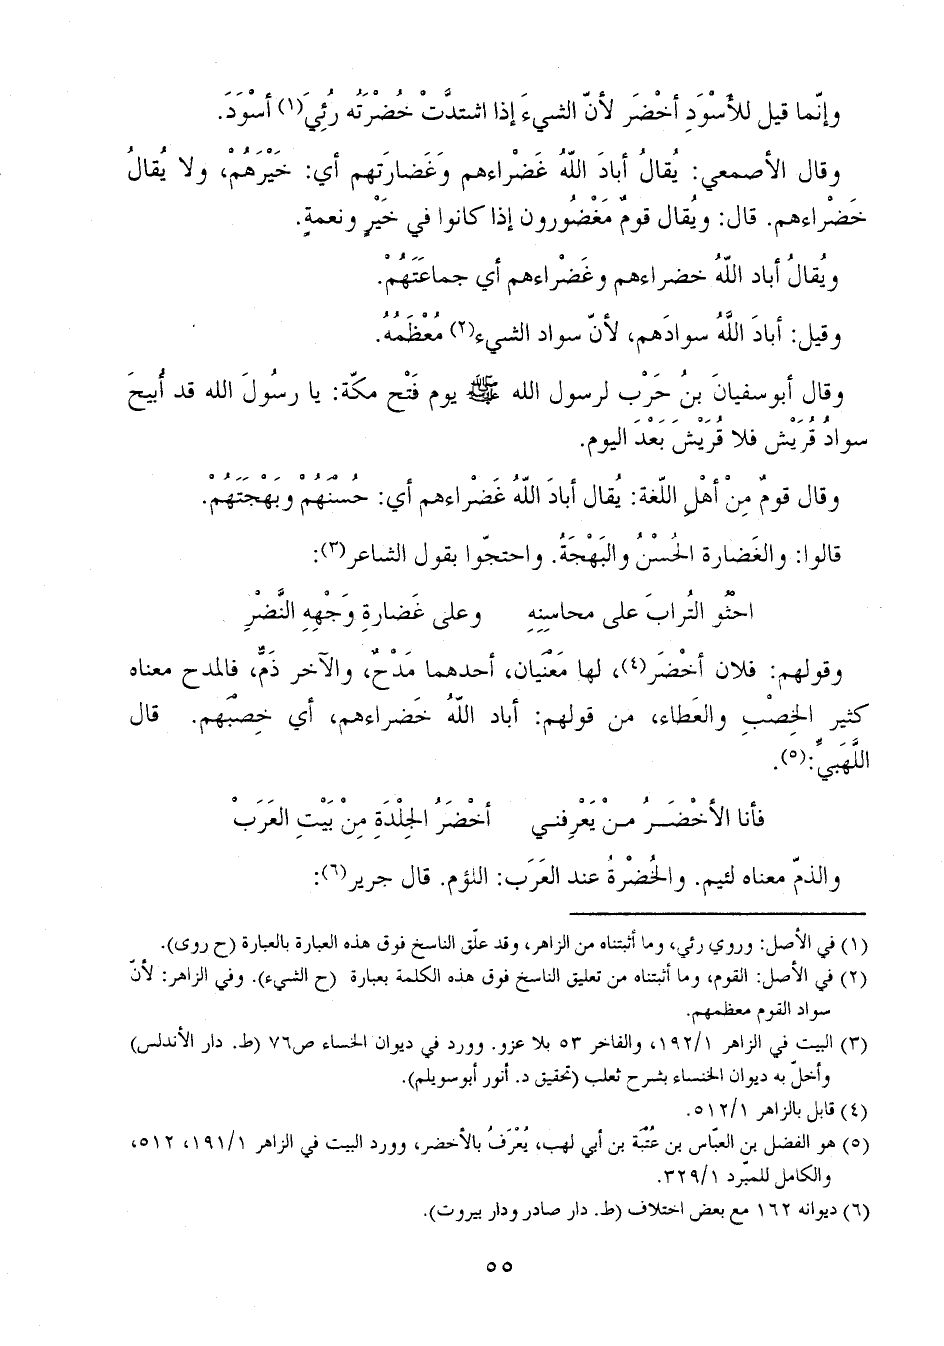 وإنّما قيل للأَسْوَدِ أخْضَر لأنّ الشيءَ إذا اشتدَّتْ خُضْرَتُه رُئِيَ(١) أسْوَدَ.
وقال الأصمعي: يُقالُ أبادَ اللّهُ غَضْراءهم وغَضارَتهم أي: خَيْرَهُمْ، ولا يُقالُ
خَضْراءهم. قال: ويُقال قومٌ مَغْضُورون إذا كانوا في خَيْرٍ ونعمةٍ.
ويُقالُ أباد اللّهُ خضراءهم وغَضْراءهم أي جماعَتَهُمْ.
وقيل: أبادَ اللَّهُ سوادَهم، لأنّ سواد الشيء(٢) مُعْظَمُهُ.
وقال أبوسفيانَ بنُ حَرْب لرسول الله ﷺ يوم فَتْح مكّة: يا رسُولَ الله قد أُبيحَ
سوادُ قُرَيْش فلا قُرَيْشَ بَعْدَ اليوم.
وقال قومٌ مِنْ أهْلِ اللّغة: يُقال أبادَ اللّهُ غَضْراءهم أي: حُسْنَهُمْ وبَهْجَتَهُمْ.
قالوا: والغَضارة الحُسْنُ والبَهْجَةُ. واحتجّوا بقول الشاعر(٣):
احْثُو التُرابَ على محاسِنِه وعلى غَضارةِ وَجْهِهِ النَّضْرِ
وقولهم: فلان أخْضَر(٤)، لها مَعْنَيان، أحدهما مَدْحٌ، والآخر ذَمٌّ، فالمدح معناه
كثير الخِصْبِ والعَطاء، من قولهم: أباد اللّهُ خَضراءهم، أي خِصبَهم. قال
اللَّهَبيُّ:(٥).
فأنا الأخْضَـــرُ مـنْ يَعْرِفنـي أخْضَرُ الجِلْدَةِ مِنْ بَيْتِ العَرَبْ
والذمّ معناه لئيم. والخُضْرةُ عند العَرَب: اللؤم. قال جرير(٦):
(١) في الأصل: وروي رئي، وما أثبتناه من الزاهر، وقد علّق الناسخ فوق هذه العبارة بالعبارة (ح روى).
(٢) في الأصل: القوم، وما أثبتناه من تعليق الناسخ فوق هذه الكلمة بعبارة (ح الشيء). وفي الزاهر: لأنّ
سواد القوم معظمهم.
(٣) البيت في الزاهر ١٩٢/١، والفاخر ٥٣ بلا عزو. وورد في ديوان الخساء ص٧٦ (ط. دار الأندلس)
وأخلّ به ديوان الخنساء بشرح ثعلب (تحقيق د. أنور أبوسويلم).
(٤) قابل بالزاهر ٥١٢/١.
(٥) هو الفضل بن العبّاس بن عُتْبَة بن أبي لهب، يُعْرَفُ بالأخضر، وورد البيت في الزاهر ١٩١/١، ٥١٢،
والكامل للمبّرد ٣٢٩/١.
(٦) ديوانه ١٦٢ مع بعض اختلاف (ط. دار صادر ودار بيروت).
٥٥